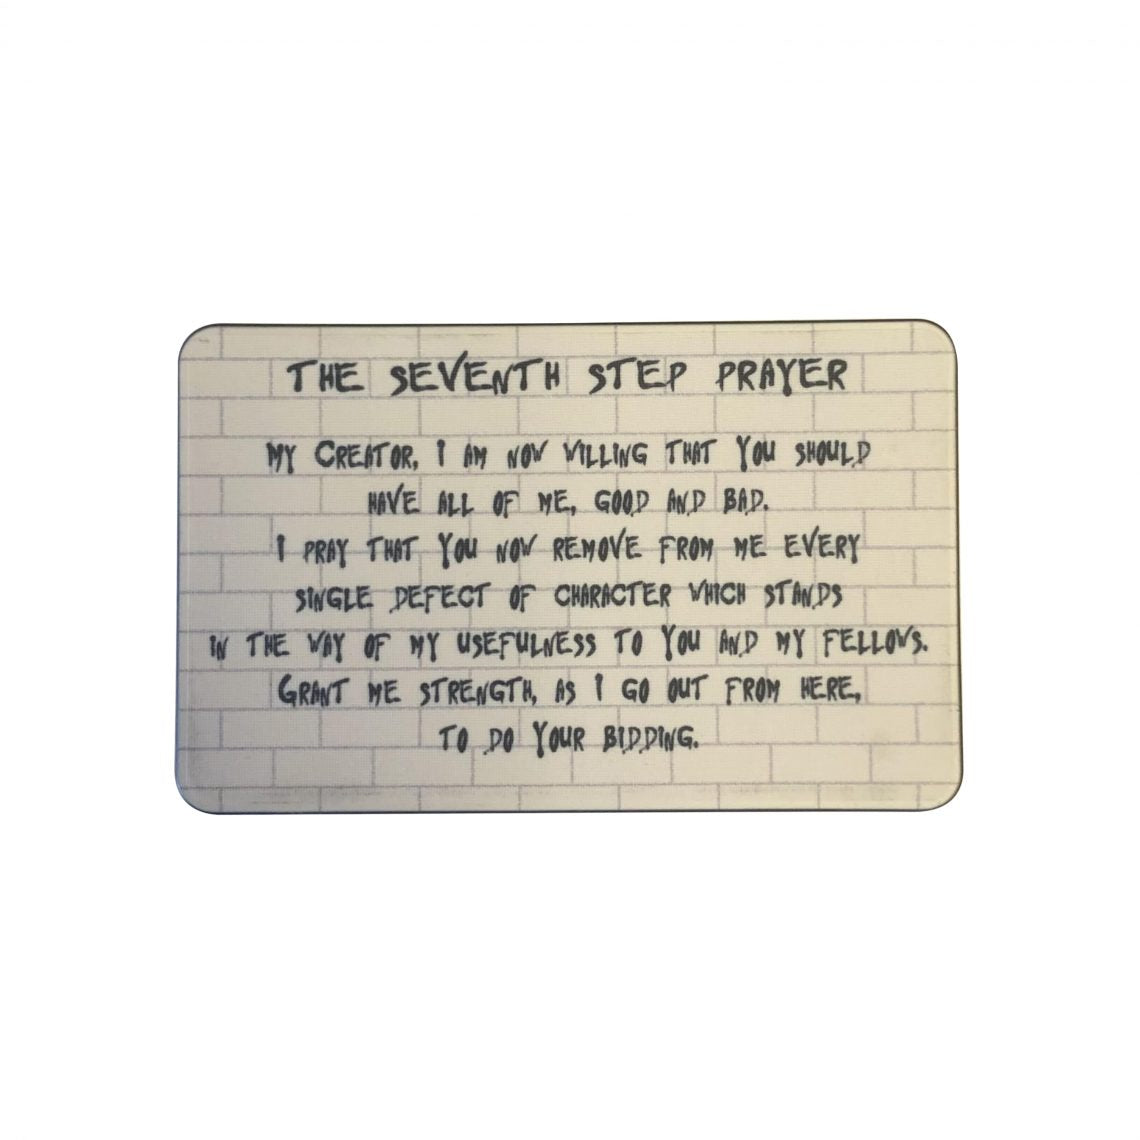 THE SEVENTH STEP PRAYER
MY CREATOR, I AM NOW WILLING THAT YOU SHOULD
HAVE ALL OF ME, GOOD AND BAD.
I PRAY THAT YOU NOW REMOVE FROM ME EVERY
SINGLE DEFECT OF CHARACTER WHICH STANDS
IN THE WAY OF MY USEFULNESS TO YOU AND MY FELLOWS.
GRANT ME STRENGTH, AS I GO OUT FROM HERE,
TO DO YOUR BIDDING.